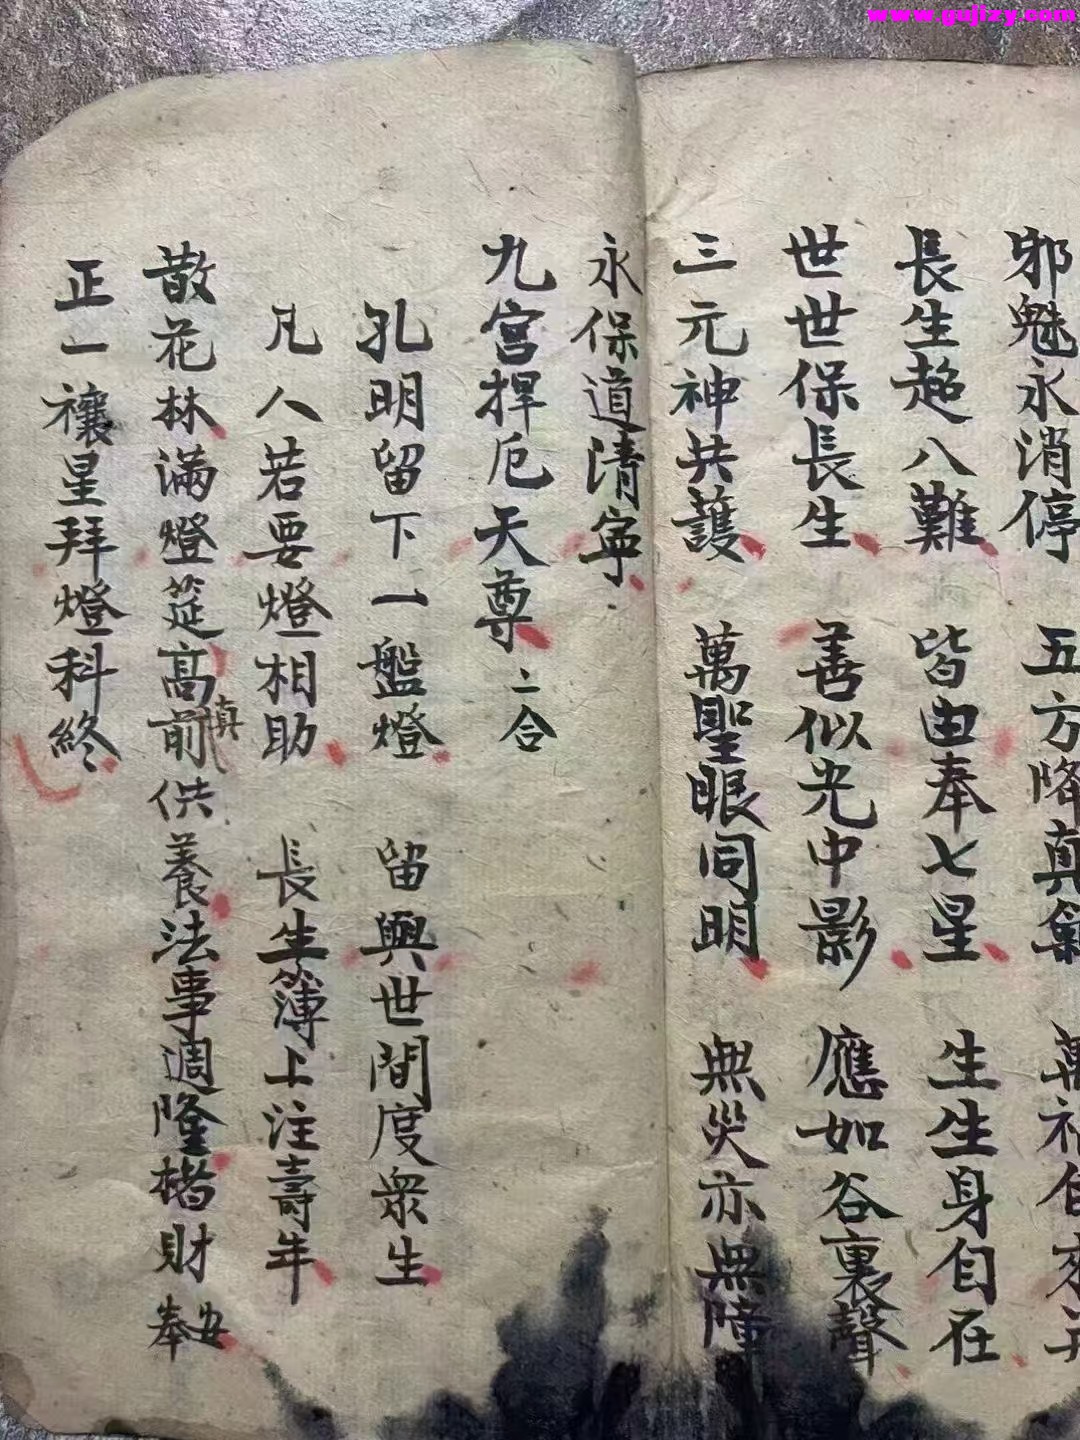 www.gujizy.com
邪魅永消停 五方降真氣 萬神自來
長生超八難 皆由奉七星 生生身自在
世世保長生 善似光中影 應如谷裏聲
三元神共護 萬聖眼同明 無災亦無障
永保道清寧
九宮捍厄天尊 二合
孔明留下一盤燈 留與世間度眾生
凡人若要燈相助 長生簿上注壽年
散花林滿燈筵高前真供養法事週隆楮財安奉
正一禳星拜燈科終